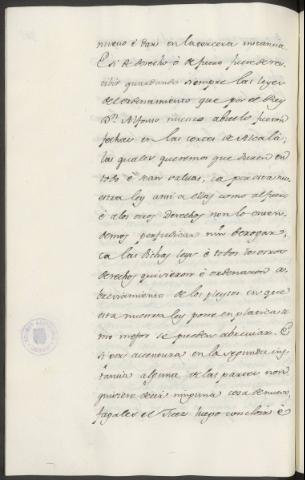 nuevo é dar en la tercera instancia
E si de derecho ó de fuero fuere de re-
cibir guardando siempre las leyes
del ordenamiento que por el Rey
Dn. Alfonso nuestro abuelo fueron
fechas en las cortes de Alcalá,
las quales queremos que duren en
todo é sean valuas, la presente nu-
estra ley ansi a ellas como al fuero
é a los otros derechos non lo enten-
demos perjudicar nin derogar,
ca las dichas leyes é todos los otros
derechos quisieron é ordenaron a-
breviamiento de los pleytos en que
esta nuestra ley pone en platica co-
mo mejor se pueden abreviar. E
si por aventura en la segunda ins-
tancia alguna de las partes non
quisiere decir ninguna cosa de nuevo
fagales el Juez luego concluir é